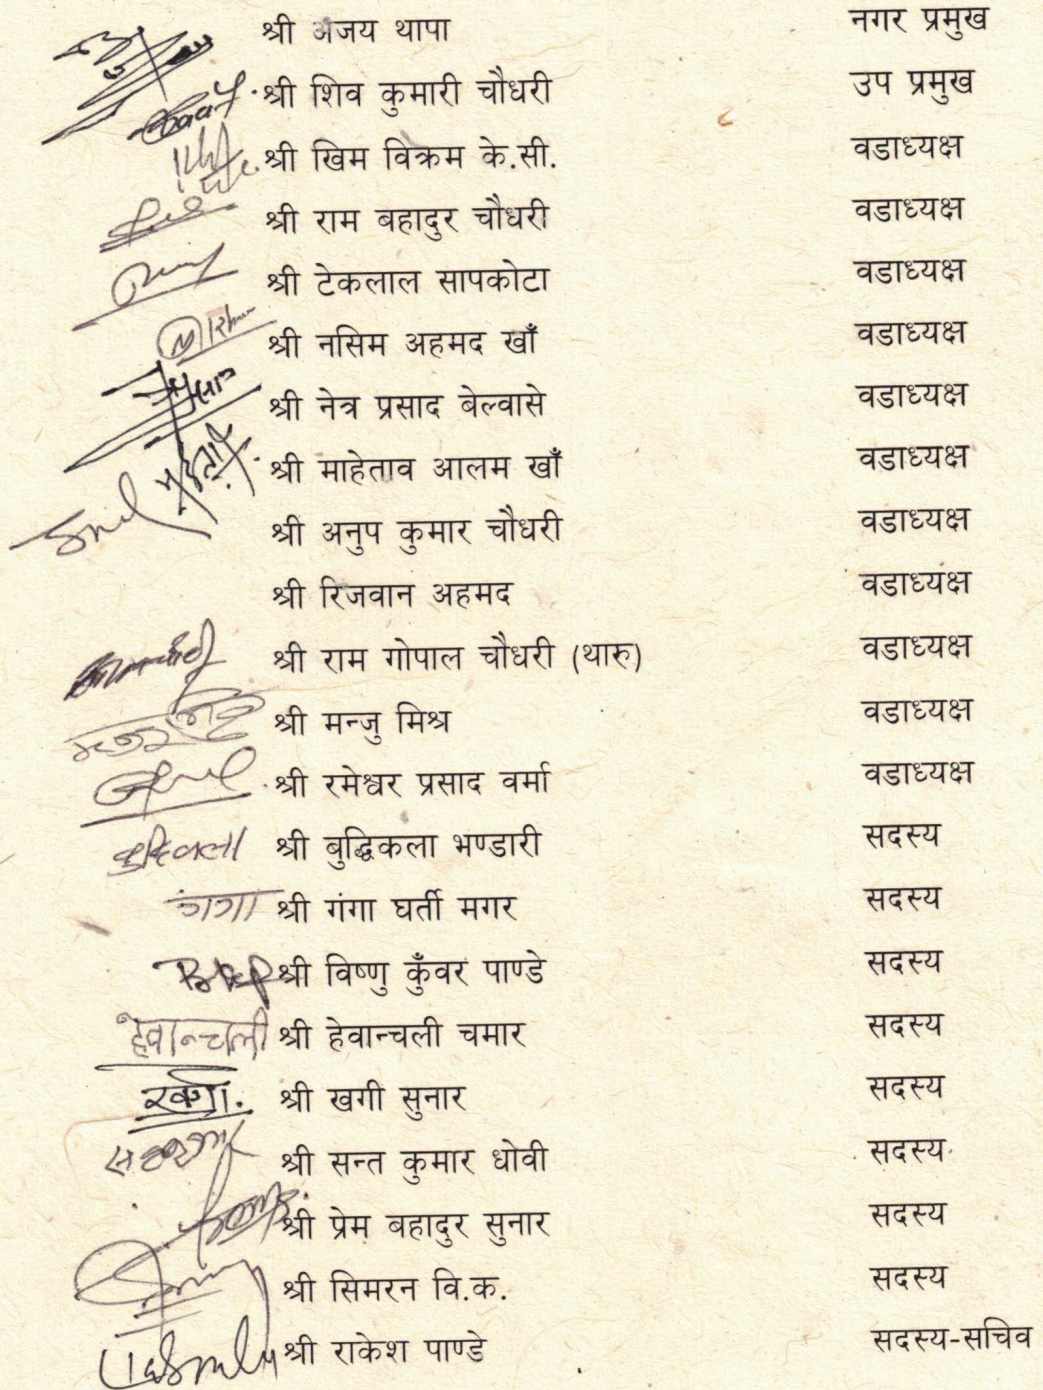 श्री अजय थापा नगर प्रमुख
श्री शिव कुमारी चौधरी उप प्रमुख
श्री खिम विक्रम के.सी. वडाध्यक्ष
श्री राम बहादुर चौधरी वडाध्यक्ष
श्री टेकलाल सापकोटा वडाध्यक्ष
श्री नसिम अहमद खाँ वडाध्यक्ष
श्री नेत्र प्रसाद बेल्वासे वडाध्यक्ष
श्री माहेताव आलम खाँ वडाध्यक्ष
श्री अनुप कुमार चौधरी वडाध्यक्ष
श्री रिजवान अहमद वडाध्यक्ष
श्री राम गोपाल चौधरी (थारु) वडाध्यक्ष
श्री मन्जु मिश्र वडाध्यक्ष
श्री रमेश्वर प्रसाद वर्मा वडाध्यक्ष
बुद्धिकला श्री बुद्धिकला भण्डारी सदस्य
गंगा श्री गंगा घर्ती मगर सदस्य
श्री विष्णु कुँवर पाण्डे सदस्य
हेवान्चली श्री हेवान्चली चमार सदस्य
खगी. श्री खगी सुनार सदस्य
श्री सन्त कुमार धोवी सदस्य
श्री प्रेम बहादुर सुनार सदस्य
श्री सिमरन वि.क. सदस्य
श्री राकेश पाण्डे सदस्य-सचिव